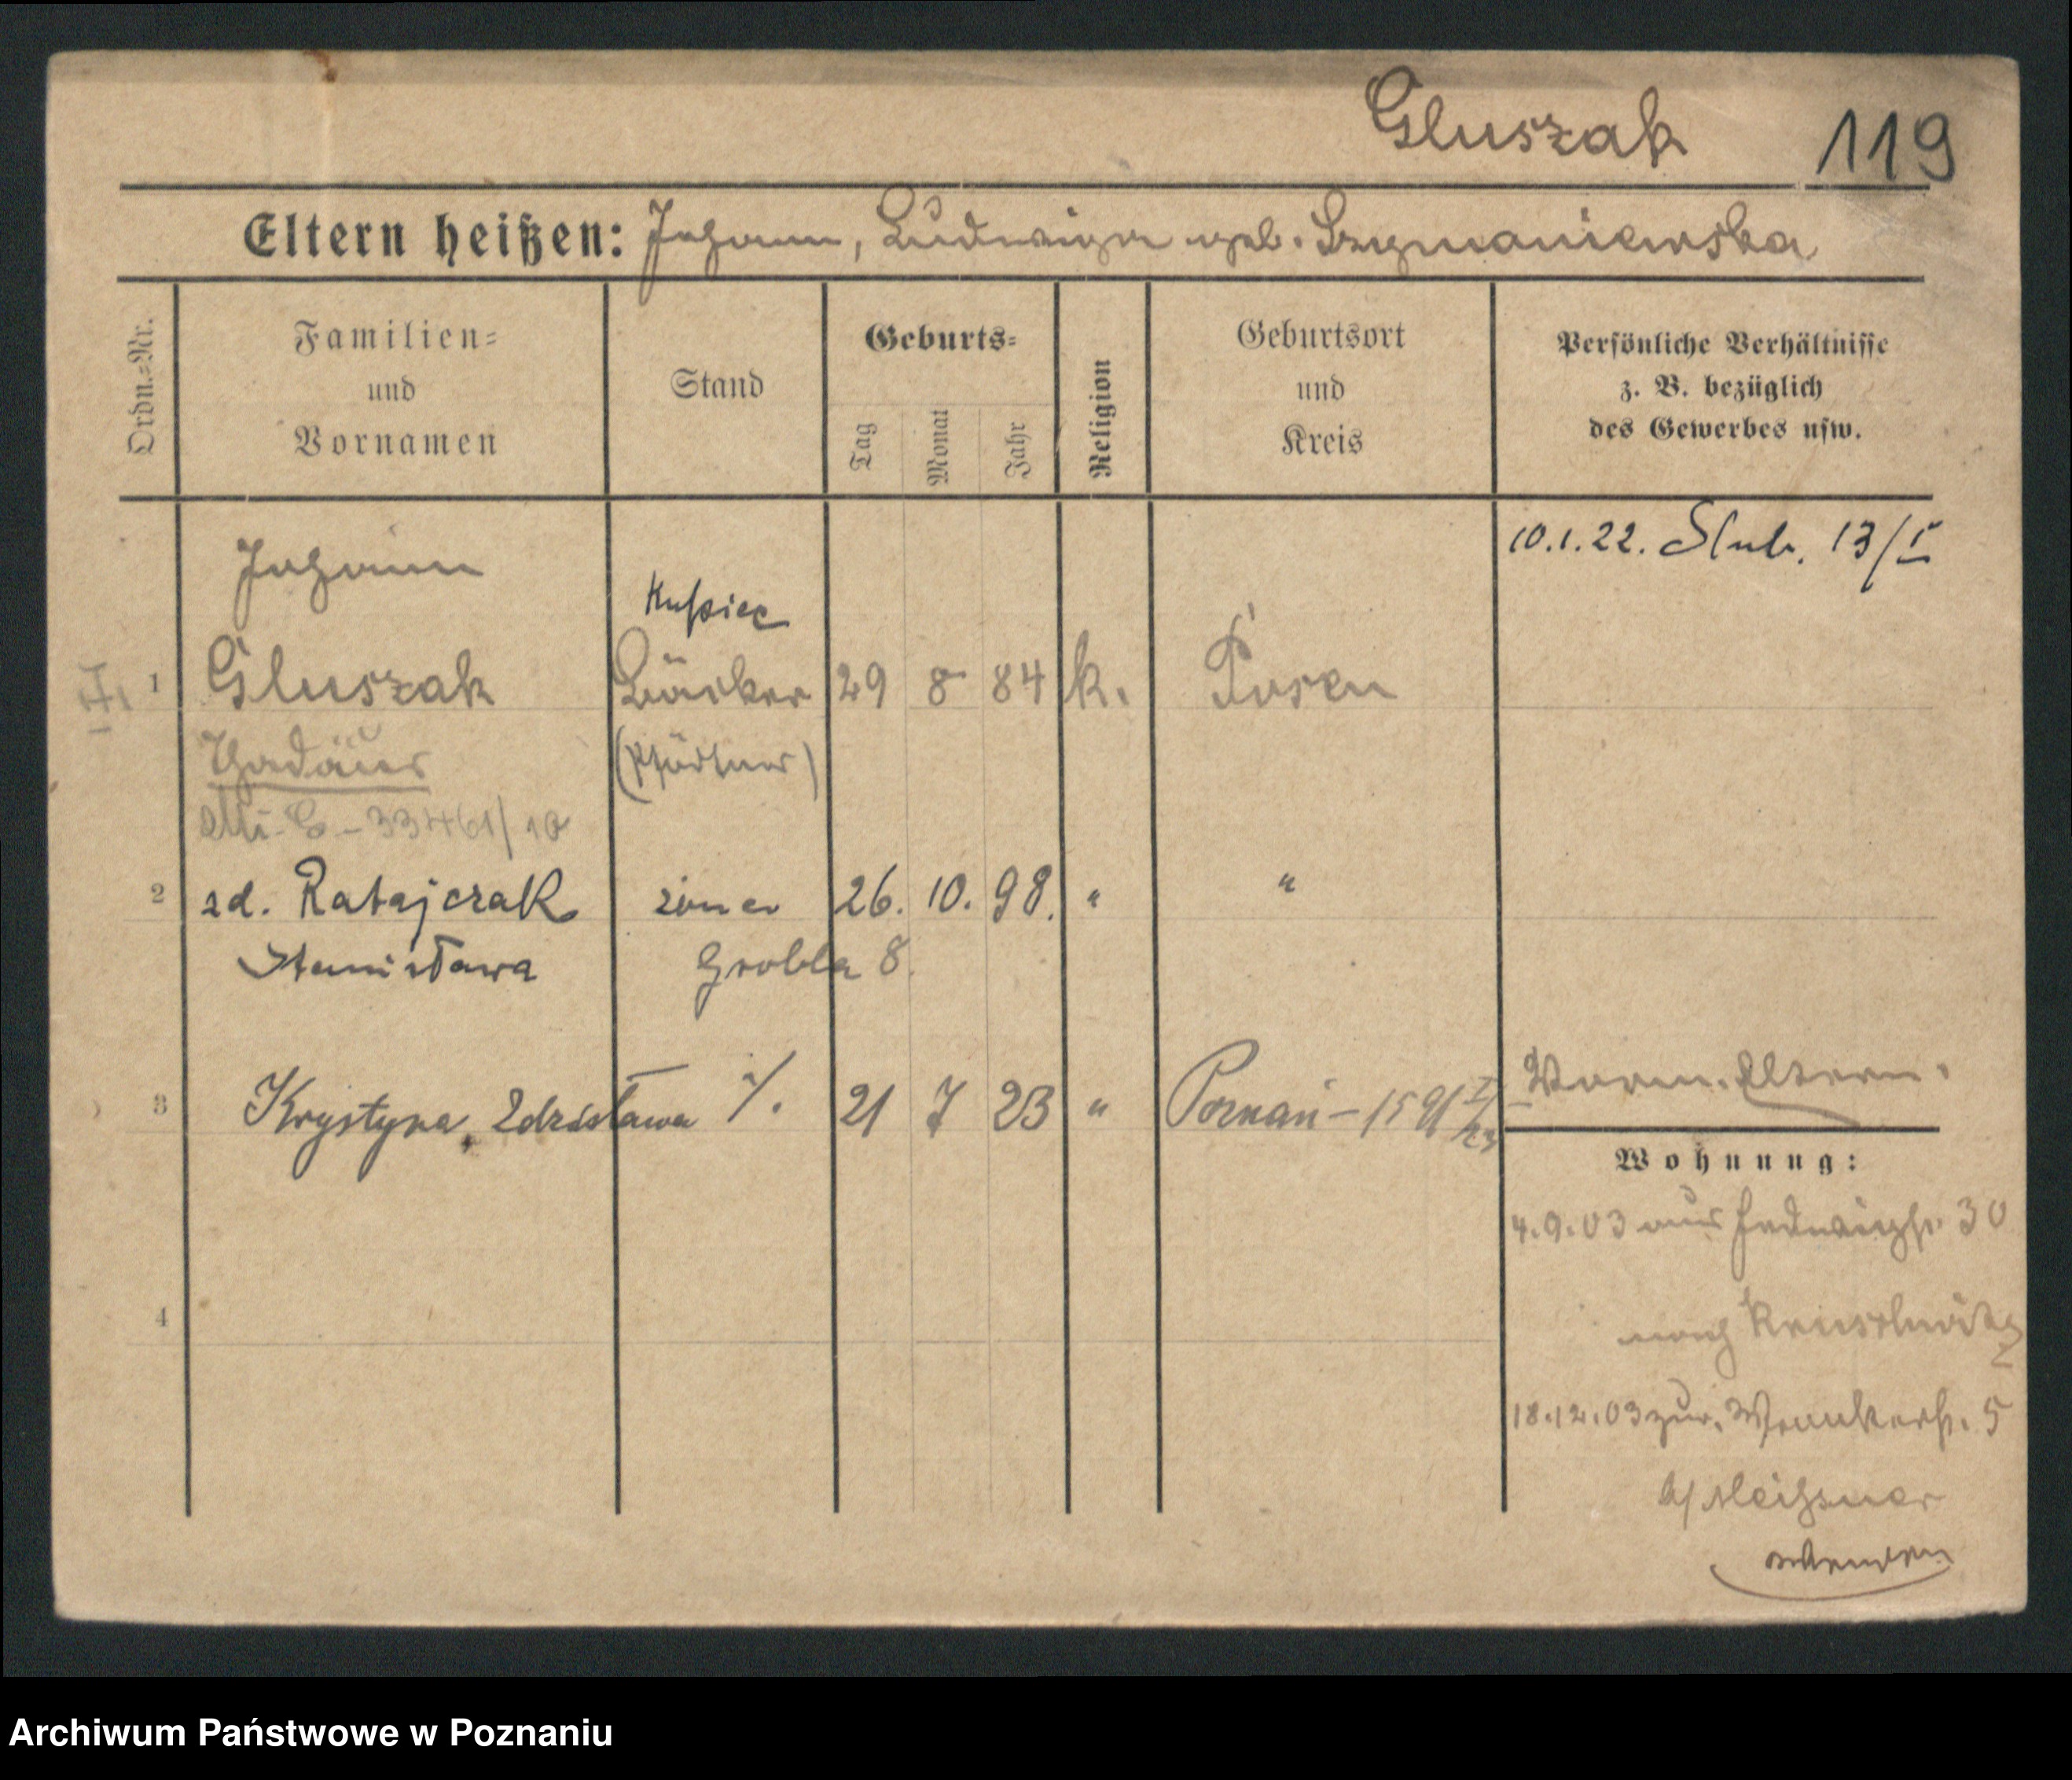 Gluszak 119
Eltern heißen: Johann, Ludwiga geb. Szymaniewska
Ordn.-Nr.
Familien- und Vornamen
Stand
Geburts-
Tag
Monat
Jahr
Religion
Geburtsort und Kreis
Persönliche Verhältnisse z. B. bezüglich des Gewerbes usw.
10.1.22. Slub. 13/I
Johann
Kupiec
1 Gluszak Bäcker 29 8 84 k. Posen
Thadäus
33461/10
2 zd. Ratajczak żona 26. 10. 98. " "
Stanisława Grobla 8.
Vorm. Eltern.
3 Krystyna Zdzisława 21 7 23 " Poznań – 1591
Wohnung:
4.9.03 aus Hedwigstr. 30
4
nach Kruschwitz
18.12.03 zur. 5
b/ Meißner
wenden
Archiwum Państwowe w Poznaniu